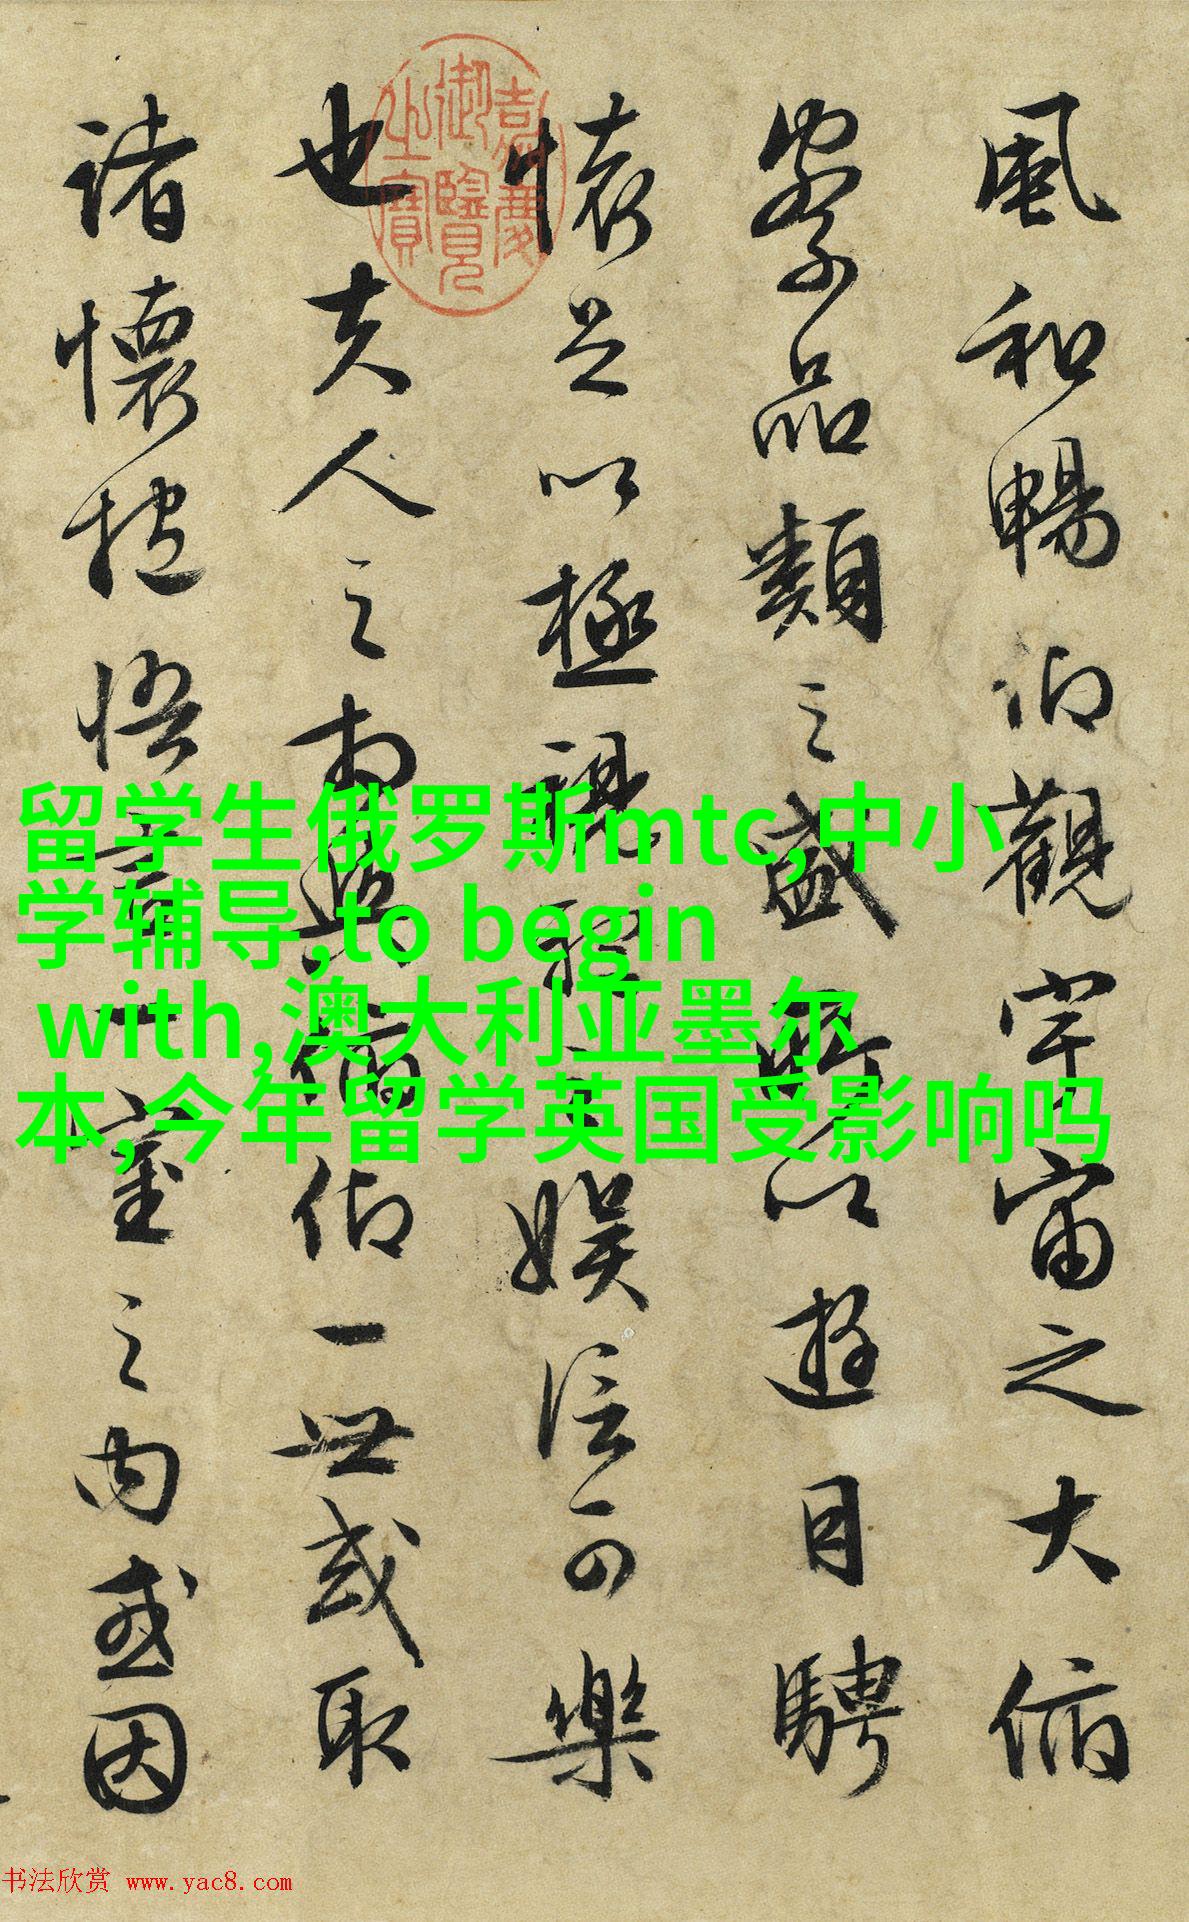 風和暢仰觀宇宙之大俯
察品類之盛所以遊目騁
懷足以極視聽之娛信可樂
也夫人之相與俯仰一世或取
諸懷抱悟言一室之內或因
嘉慶
御覽
之寶
留学生俄罗斯mtc,中小
学辅导,to begin
with,澳大利亚墨尔
本,今年留学英国受影响吗
书法欣赏 www.yac8.com